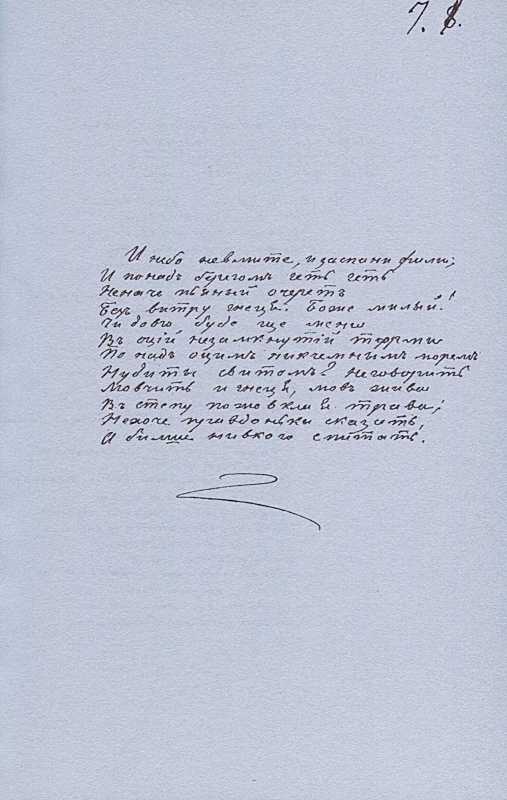 7. 8.
И небо невмите, и заспани хвили;
И понадъ берегомъ геть геть
Неначе пьяный очеретъ
Безъ витру гнеця. Боже милый!
Чи довго буде ще мени
Въ оцій незамкнутій тюрми
По надъ оцимъ никчемнимъ моремъ
Нудити свитомъ? Неговорить
Мовчить и гнеця, мовъ жива
Въ степу пожовклая трава;
Нехоче правдоньки сказать,
А бильше нивкого спитать.